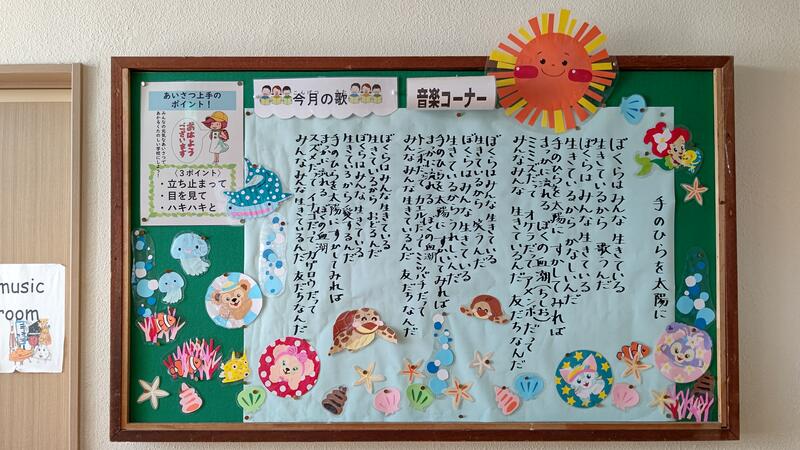 あいさつ上手の
ポイント！
おはよう
ございます
〈3ポイント〉
・立ち止まって
・目を見て
・ハキハキと
今月の歌
音楽コーナー
手のひらを太陽に
ぼくらはみんな 生きている
生きているから 歌うんだ
ぼくらはみんな 生きている
生きているから かなしいんだ
手のひらを太陽に すかしてみれば
まっかに流れる ぼくの血潮(ちしお)
ミミズだって オケラだって アメンボだって
みんなみんな 生きているんだ 友だちなんだ
ぼくらはみんな 生きている
生きているから 笑うんだ
ぼくらはみんな 生きている
生きているから うれしいんだ
手のひらを太陽に すかしてみれば
まっかに流れる ぼくの血潮
トンボだって カエルだって ミツバチだって
みんなみんな 生きているんだ 友だちなんだ
ぼくらはみんな 生きている
生きているから おどるんだ
ぼくらはみんな 生きている
生きているから 愛するんだ
手のひらを太陽に すかしてみれば
まっかに流れる ぼくの血潮
スズメだって イナゴだって カゲロウだって
みんなみんな 生きているんだ 友だちなんだ
music
room